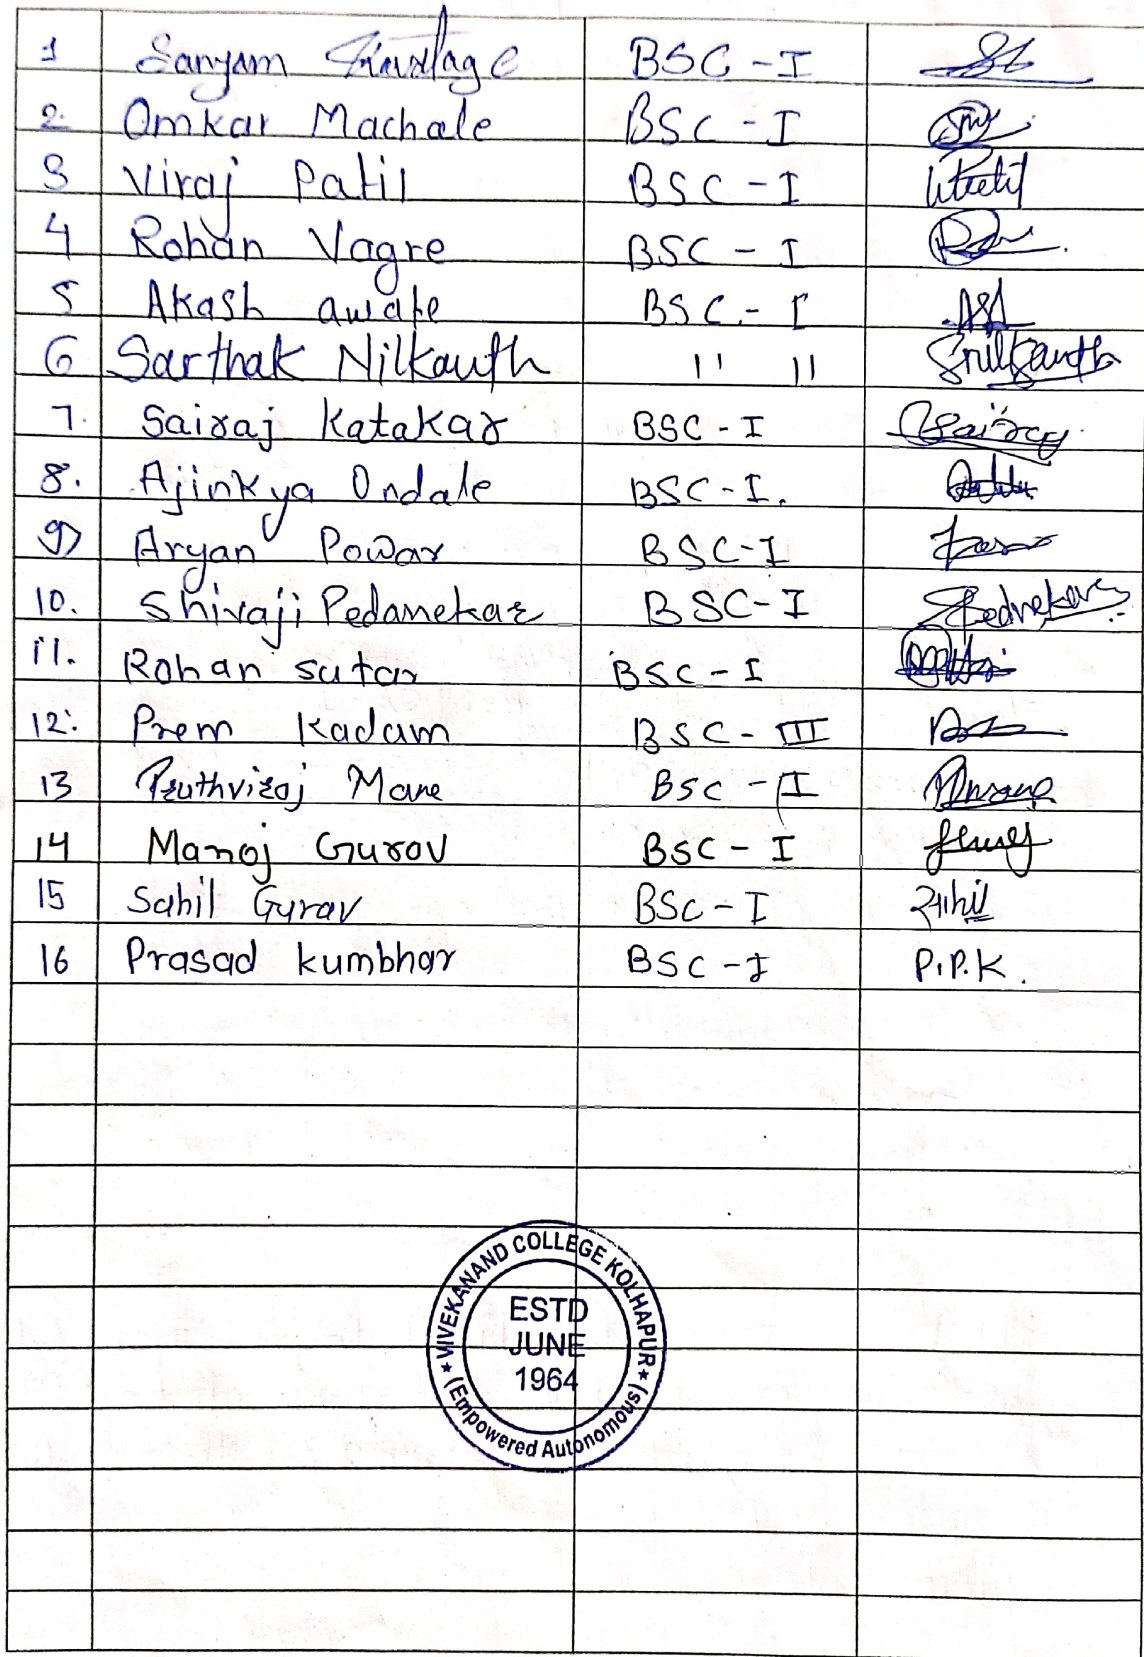 1 Sanyam BSC - I
2. Omkar Machale BSC - I
3 Viraj Patil BSC - I
4 Rohan Vagre BSC - I
5 Akash awate BSC - I
6 Sarthak Nilkanth " "
7. Sairaj Katakar BSC - I Sairaj
8. Ajinkya Ondale BSC - I.
9) Aryan Powar BSC-I
10. Shivaji Pedanekar BSC-I
11. Rohan sutar BSC - I
12. Prem Kadam BSC - III
13 Pruthviraj Mane BSC - I
14 Manoj Gurov BSC - I
15 Sahil Gurav BSC - I साहिल
16 Prasad kumbhar BSC - I P.P.K.
VIVEKANAND COLLEGE KOLHAPUR
ESTD
JUNE
1964
(Empowered Autonomous)